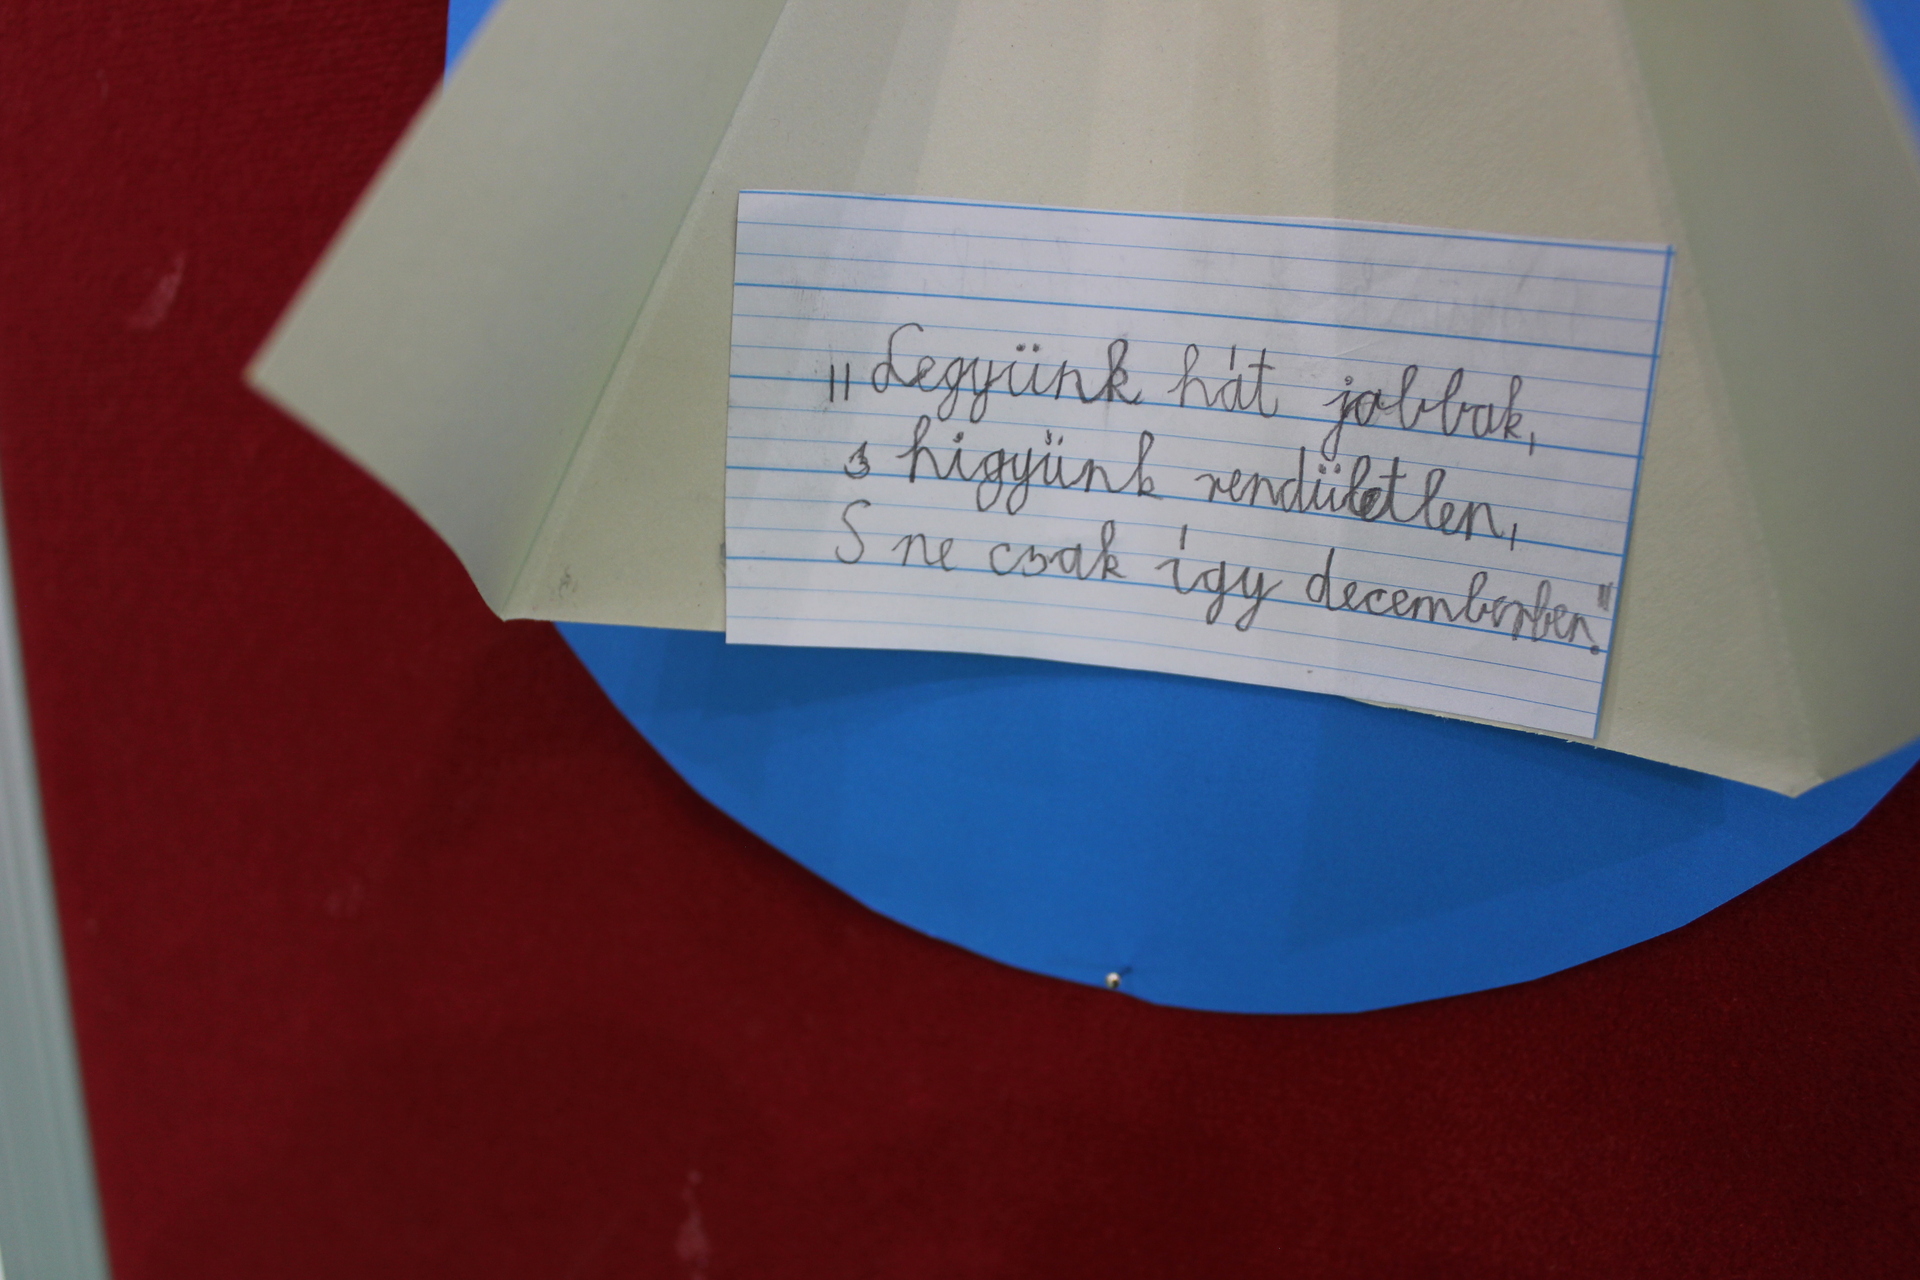 „Legyünk hát jobbak,
s higyünk rendületlen,
S ne csak így decemberben."